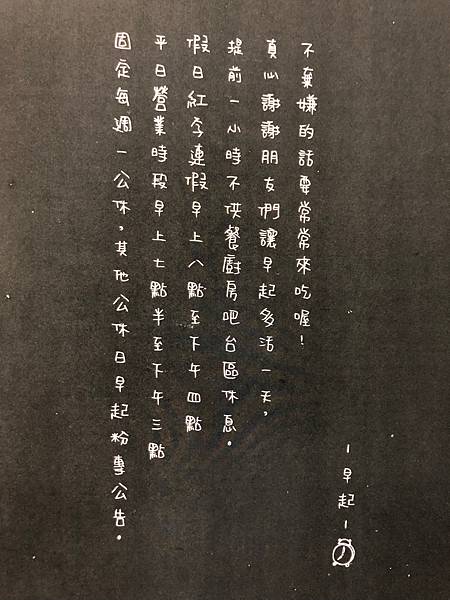 固定每週一公休，其他公休日早起粉專公告。
平日營業時段早上七點半至下午三點
假日紅字連假早上八點至下午四點
提前一小時不供餐廚房吧台區休息。
真心謝謝朋友們讓早起多活一天，
不棄嫌的話要常常來吃喔！
-早起-